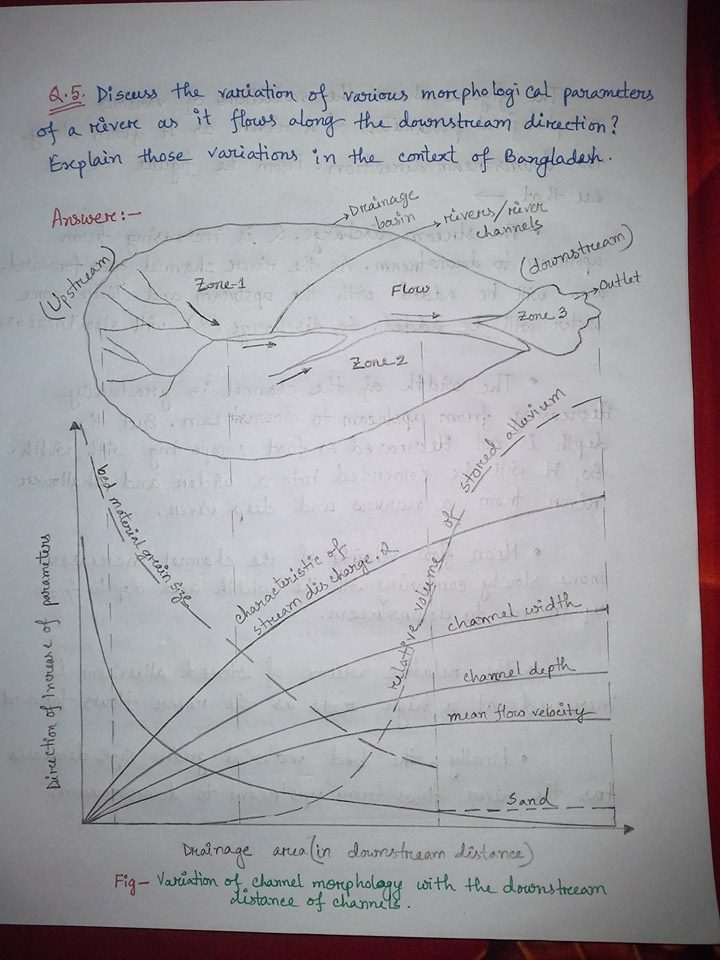 Q.5. Discuss the variation of various morphological parameters
of a river as it flows along the downstream direction?
Explain those variations in the context of Bangladesh.
Answer:-
Drainage
basin
rivers/river
channels
(Upstream)
Zone-1
Flow
(downstream)
Outlet
Zone 3
Zone-2
bed material grain size
characteristic of
stream discharge, Q
relative volume of stored alluvium
channel width
channel depth
mean flow velocity
Sand
Direction of Increase of parameters
Drainage area (in downstream distance)
Fig- Variation of channel morphology with the downstream
distance of channels.